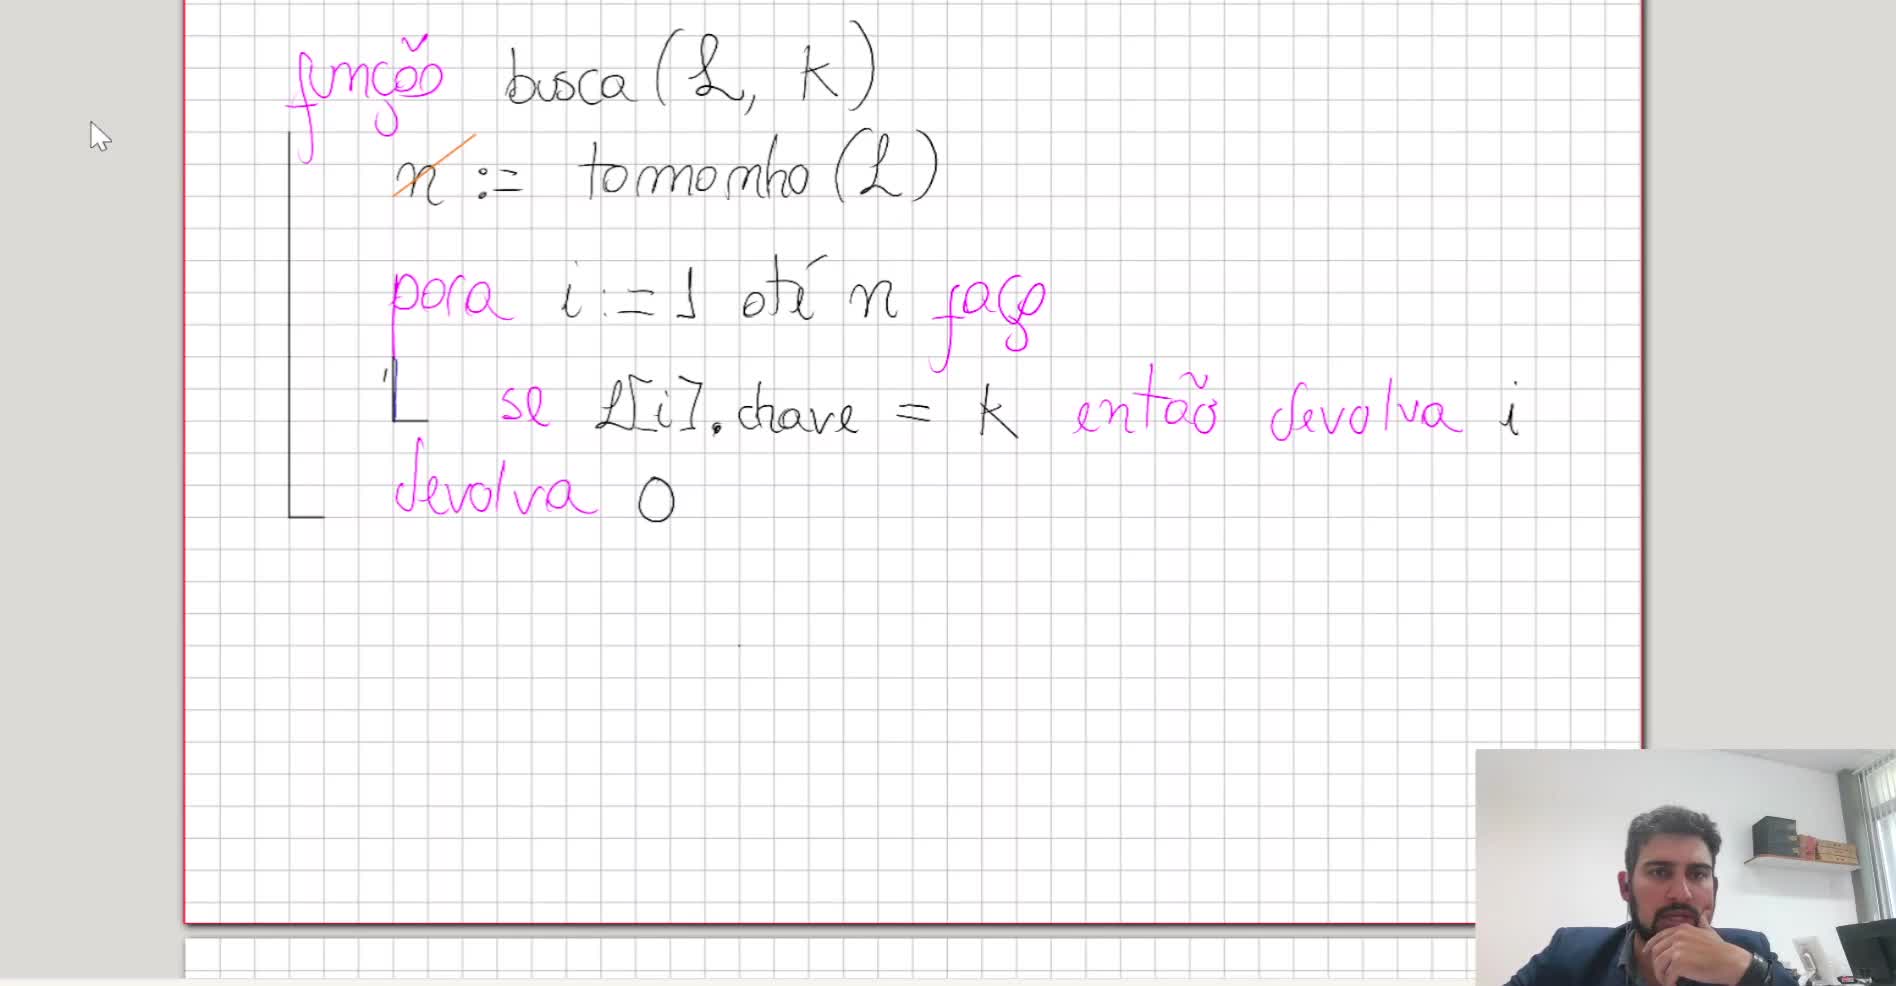 função busca (L, k)
n := tamanho (L)
para i := 1 até n faça
se L[i].chave = k então devolva i
devolva 0